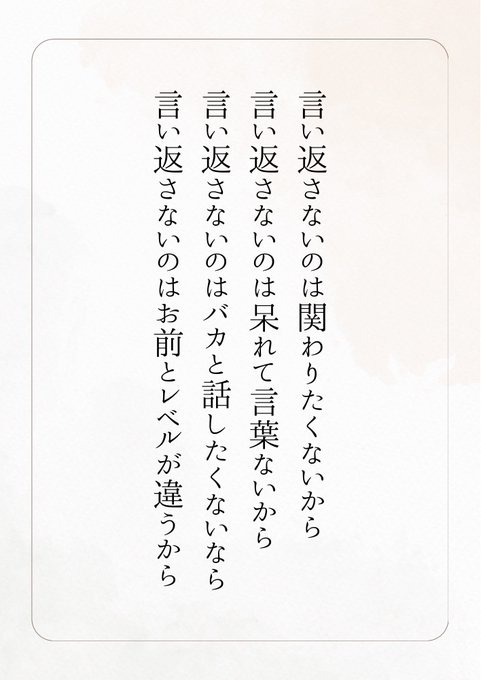 言い返さないのは関わりたくないから
言い返さないのは呆れて言葉ないから
言い返さないのはバカと話したくないなら
言い返さないのはお前とレベルが違うから